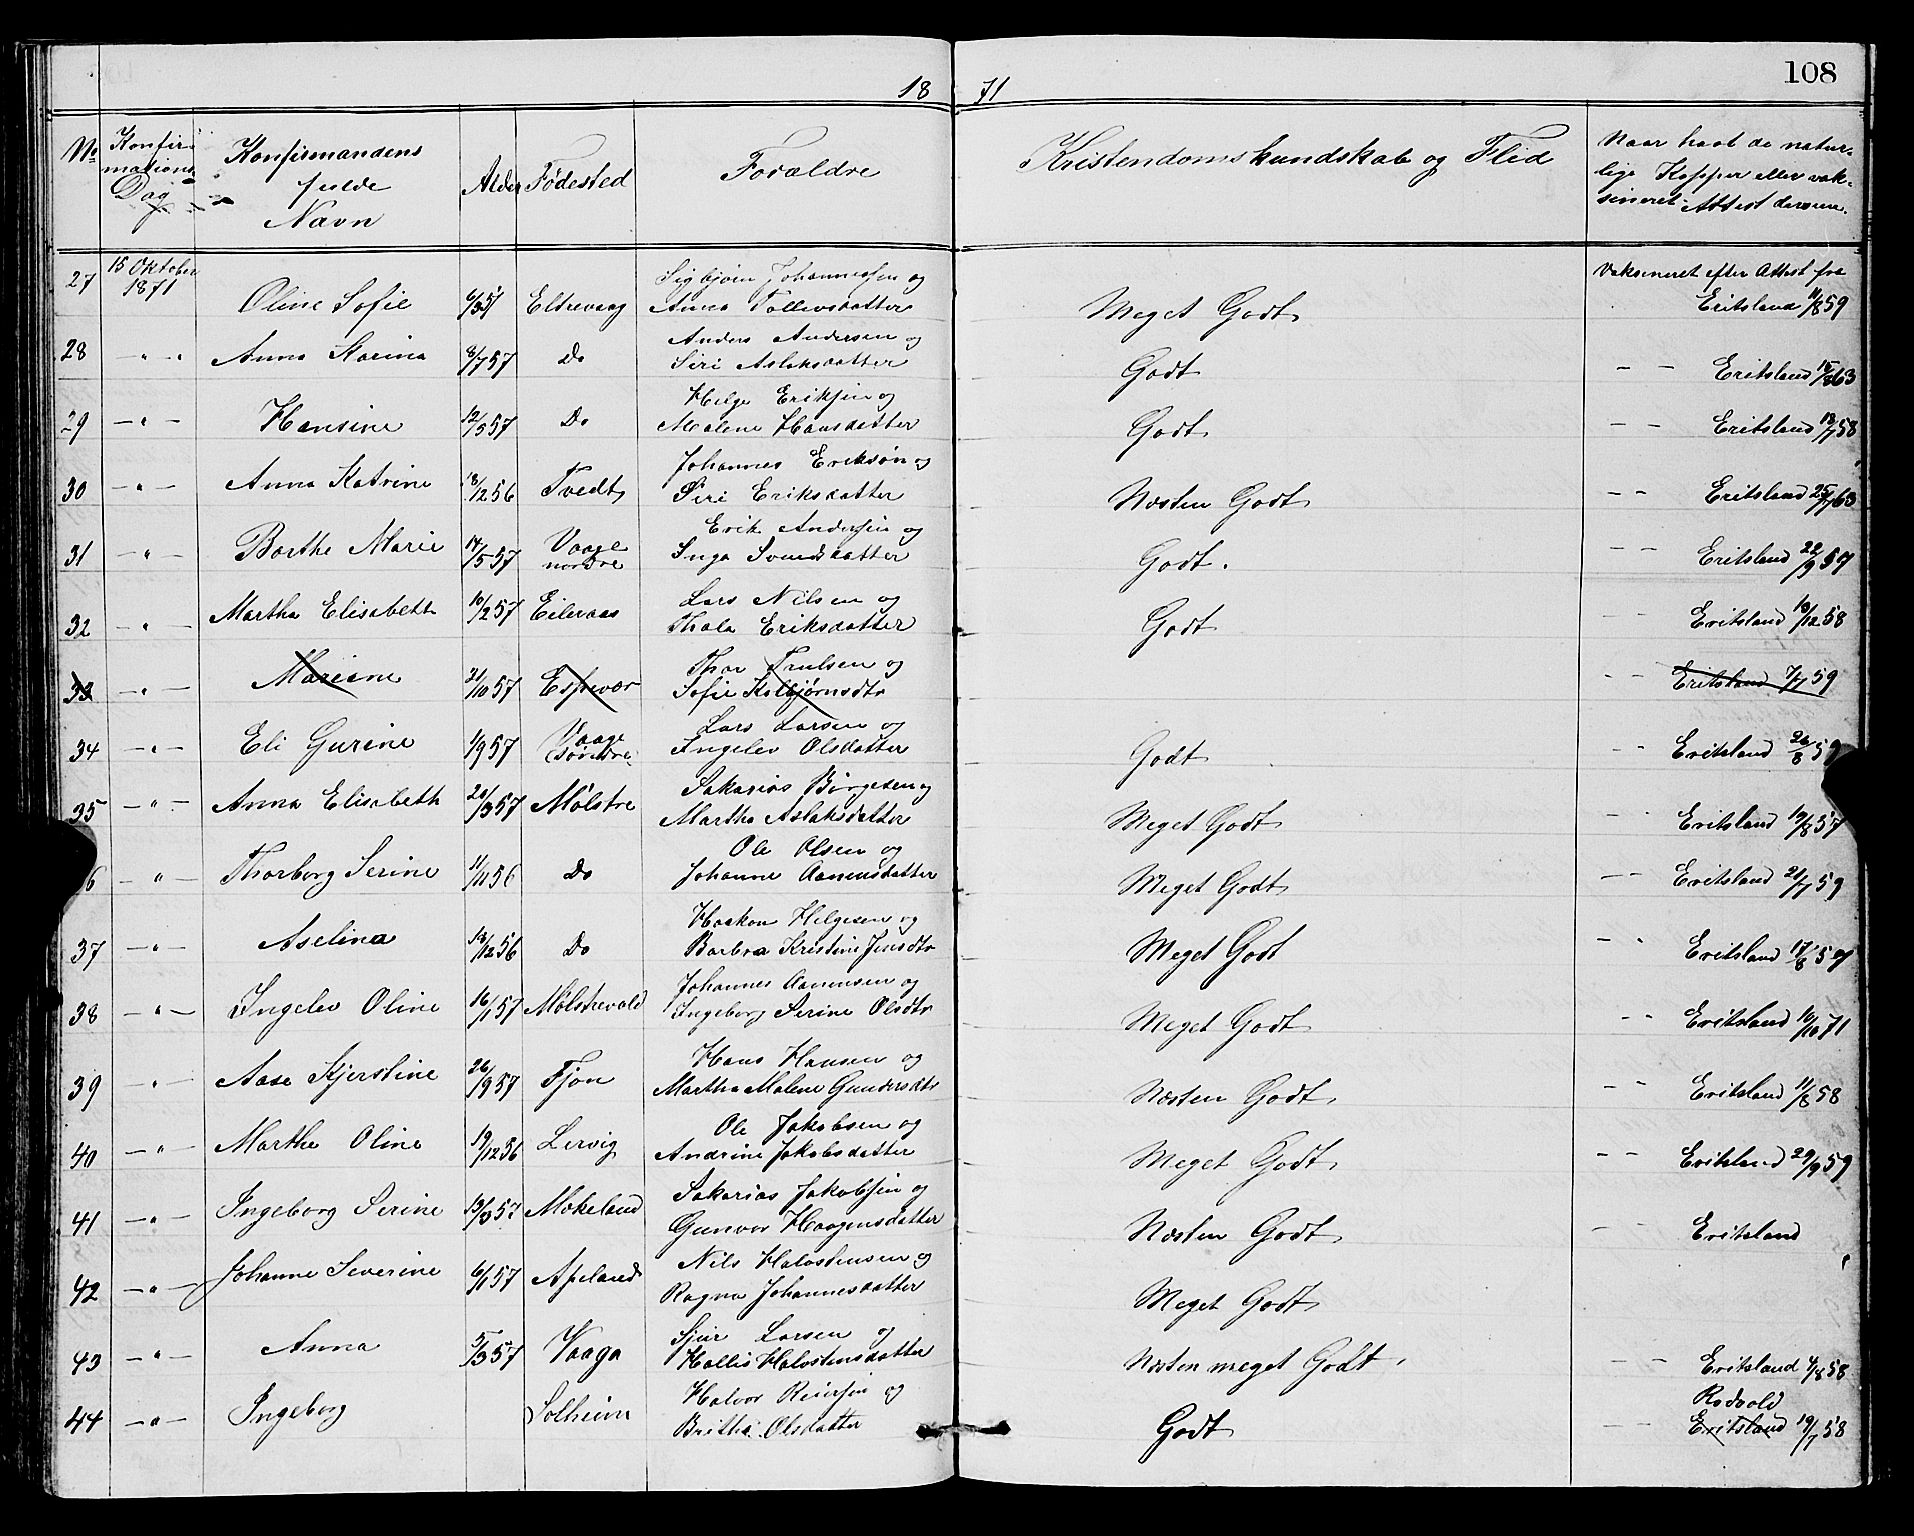 108
18 71
No
Konfir-
mations
Dag
Konfirmandens
fulde
Navn
Alder
Fødested
Forældre
Kristendomskundskab og Flid
Naar havt de natur-
lige Kopper eller vak-
sineret. Attest derom.
27 15 Oktober 1871 Oline Sofie Eltrevaag Sigbjørn Johannessen og
Anna Tollevsdatter Meget Godt Vaksineret efter Attest fra
Eritsland 11/8 59
28 - " - Anna Karina 8/7 57 Do Anders Andersen og
Siri Aslaksdatter Godt - - Eritsland 63
29 - " - Hansine 12/5 57 Do Helge Eriksen og
Malene Hansdatter Godt - - Eritsland 13/7 58
30 - " - Anna Katrine 18/12 56 Tvedt Johannes Eriksøn og
Siri Eriksdatter Næsten Godt - - Eritsland 25/7 63
31 - " - Barthe Marie 14/5 57 Vaage
nordre Erik Andersen og
Inga Svendsdatter Godt. - - Eritsland 22/9 59
32 - " - Martha Elisabeth 10/2 57 Eileraas Lars Nilsen og
Thala Eriksdatter Godt - Eritsland 10/12 58
33 - " - Mariane 21/10 57 Espevær Thor Trulsen og
Sofie Kolbjørnsdtr - - Eritsland 7/7 59
34 - " - Eli Gurine 1/9 57 Vaage
søndre Lars Larsen og
Ingelev Olsdatter Godt - - Eritsland 26/8 59
35 - " - Anna Elisabeth 20/3 57 Mølstre Sakarias Børgesen og
Martha Aslaksdatter Meget Godt - - Eritsland 19/8 57
6 - " - Thorborg Serine 11/11 56 Do Ole Olsen og
Johanne Aanensdatter Meget Godt - - Eritsland 21/7 59
37 - " - Aselina 13/12 56 Do Haakon Helgesen og
Barbra Kristine Jensdtr Meget Godt - - Eritsland 17/8 59
38 - " - Ingelev Oline 16/1 57 Mølstrevold Johannes Aanensen og
Ingeborg Serine Olsdtr Meget Godt - - Eritsland 10/10 71
39 " - Aase Kjerstine 26/9 57 Fjon Hans Hansen og
Martha Malene Gundersdtr Næsten Godt - - Eritsland 11/8 58
40 - " - Marthe Oline 19/12 56 Lervig Ole Jakobsen og
Andrine Jakobsdatter Meget Godt - - Eritsland 29/9 59
41 - " - Ingeborg Serine 13/3 57 Mækeland Sakarias Jakobsen og
Gunvor Haagensdatter Næsten Godt - - Eritsland
42 - " - Johanne Severine 6/1 57 Apeland Nils Halvstensen og
Ragna Johannesdatter Meget Godt
43 - " - Anna 5/3 57 Vaaga Sjur Larsen og
Hallis Halvstensdatter Næsten meget Godt - - Eritsland 4/8 58
44 - " - Ingeborg Solheim Halvor Reiersen og
Britha Olsdatter Godt Rødvold
- - Eritsland 19/7 58